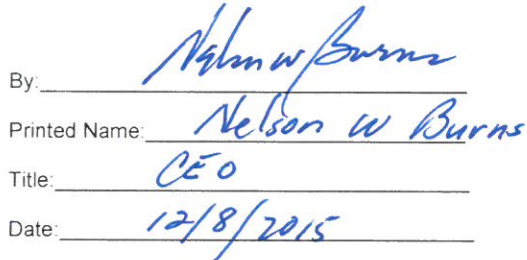 By: Nelson W Burns
Printed Name: Nelson W Burns
Title: CEO
Date: 12/8/2015